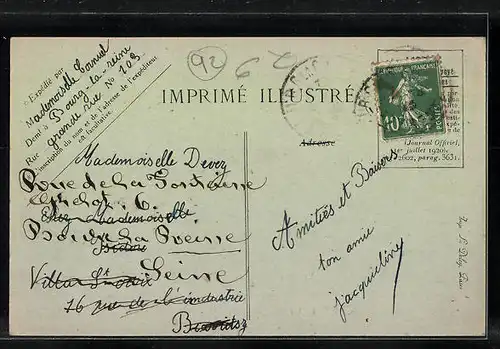 92
62
Expédié par
Mademoiselle Cornuel
Demt à Bourg-la-reine
Rue grande rue N° 103
(L'inscription du nom et de l'adresse de l'expéditeur
est facultative.
IMPRIMÉ ILLUSTRÉ
Adresse
10
POSTES
(Journal Officiel,
juillet 1920.
2602, parag. 3631.
Mademoiselle Devez
Rue de la Fontaine
Chez Mademoiselle
Bourg la Reine
Seine
Villa St
16 rue de l'industrie
Biarritz
Amitiés et Baisers
ton amie
jacqueline